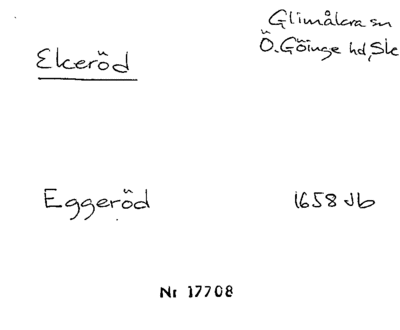 Glimåkra sn
Ekeröd
Ö. Göinge hd, Sk
Eggeröd
1658 Jb
Nr 17708